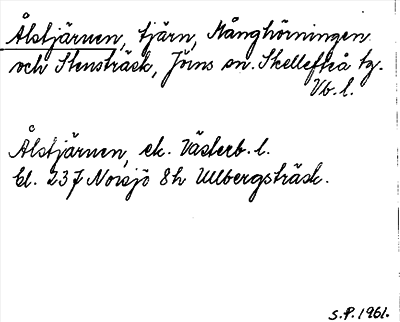 Ålstjärnen, tjärn, Månghörningen
och Stensträsk, Jörns sn. Skellefteå tg.
Vb. l.
Ålstjärnen, ek. Västerb. l.
Bl. 23J Norsjö 8h Ullbergsträsk.
S.P. 1961.